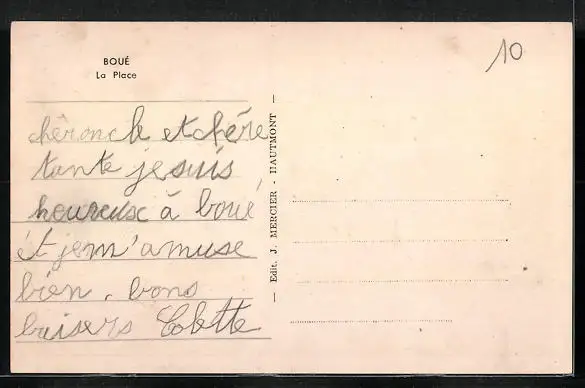 BOUÉ
La Place
10
chêroncle et chére
tante je suis
houreuse à boué
ét jem'amuse
bien. bons
baisers Colette
— Edit. J. MERCIER - HAUTMONT —